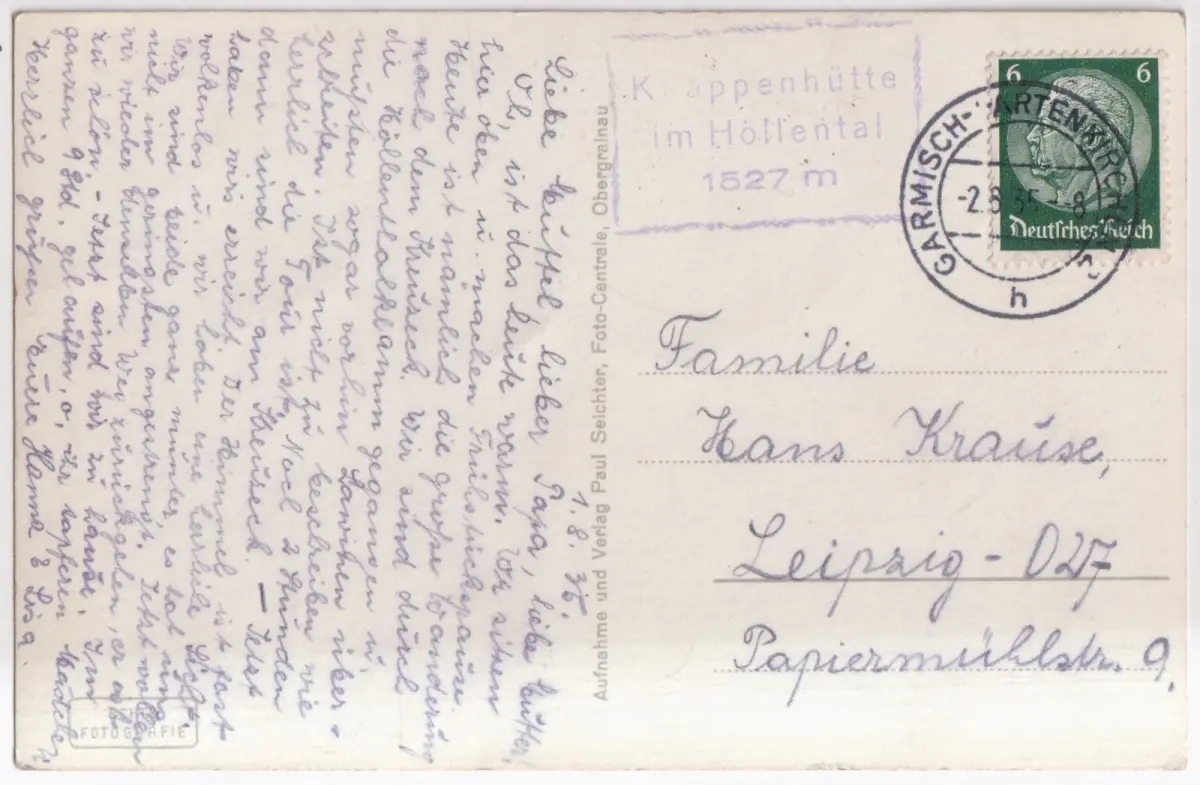 1. 8. 35.
Liebe Muttel, lieber Papa, liebe Mutter,
Oh, ist das heute warm. Wir sitzen
hier oben u. machen Frühstückspause.
Heute ist nämlich die große Wanderung
nach dem Kreuzeck. Wir sind durch
die Höllentalklamm gegangen u.
mußten sogar vorhin Lawinen über-
schreiten. Ist nicht zu beschreiben wie
herrlich die Tour ist. Noch 2 Stunden
dann sind wir am Kreuzeck. – Jetzt
haben wirs erreicht. Der Himmel ist fast
wolkenlos u. wir haben eine herrliche Sicht.
Wir sind beide ganz munter, es hat uns
nicht im geringsten angestrengt. Jetzt wollen
wir wieder denselben Weg zurückgehen, er ist
zu schön. – Jetzt sind wir zu hause. Im
ganzen 9 Std. gelaufen, o, ihr tapferen Mädels,
Herzlich grüßen Eure Hanna &
Aufnahme und Verlag Paul Seichter, Foto-Centrale, Obergrainau
FOTOGRAFIE
K appenhütte
im Höllental
1527 m
GARMISCH-PARTENKIRCHEN
-2.8.35 -8
h
6 6
Deutsches Reich
Familie
Hans Krause,
Leipzig - O27
Papiermühlstr. 9.